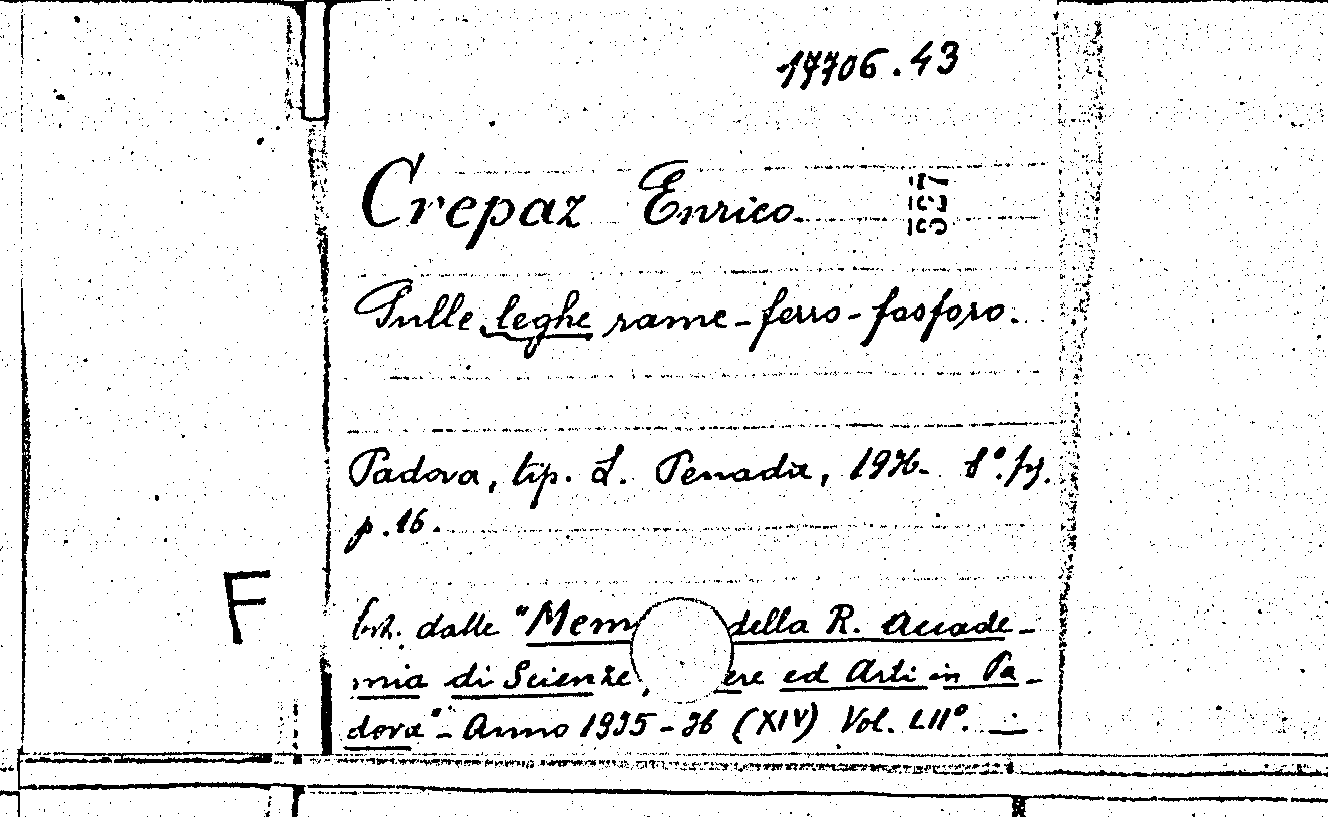 17706.43
Crepaz Enrico 327
Sulle leghe rame-ferro-fosforo.
Padova, tip. L. Penada, 1936- 8°. fig.
p. 16.
F
Estr. dalle "Mem della R. Accade-
mia di Scienze, ere ed Arti in Pa-
dova"- Anno 1935-36 (XIV) Vol. LII°. —